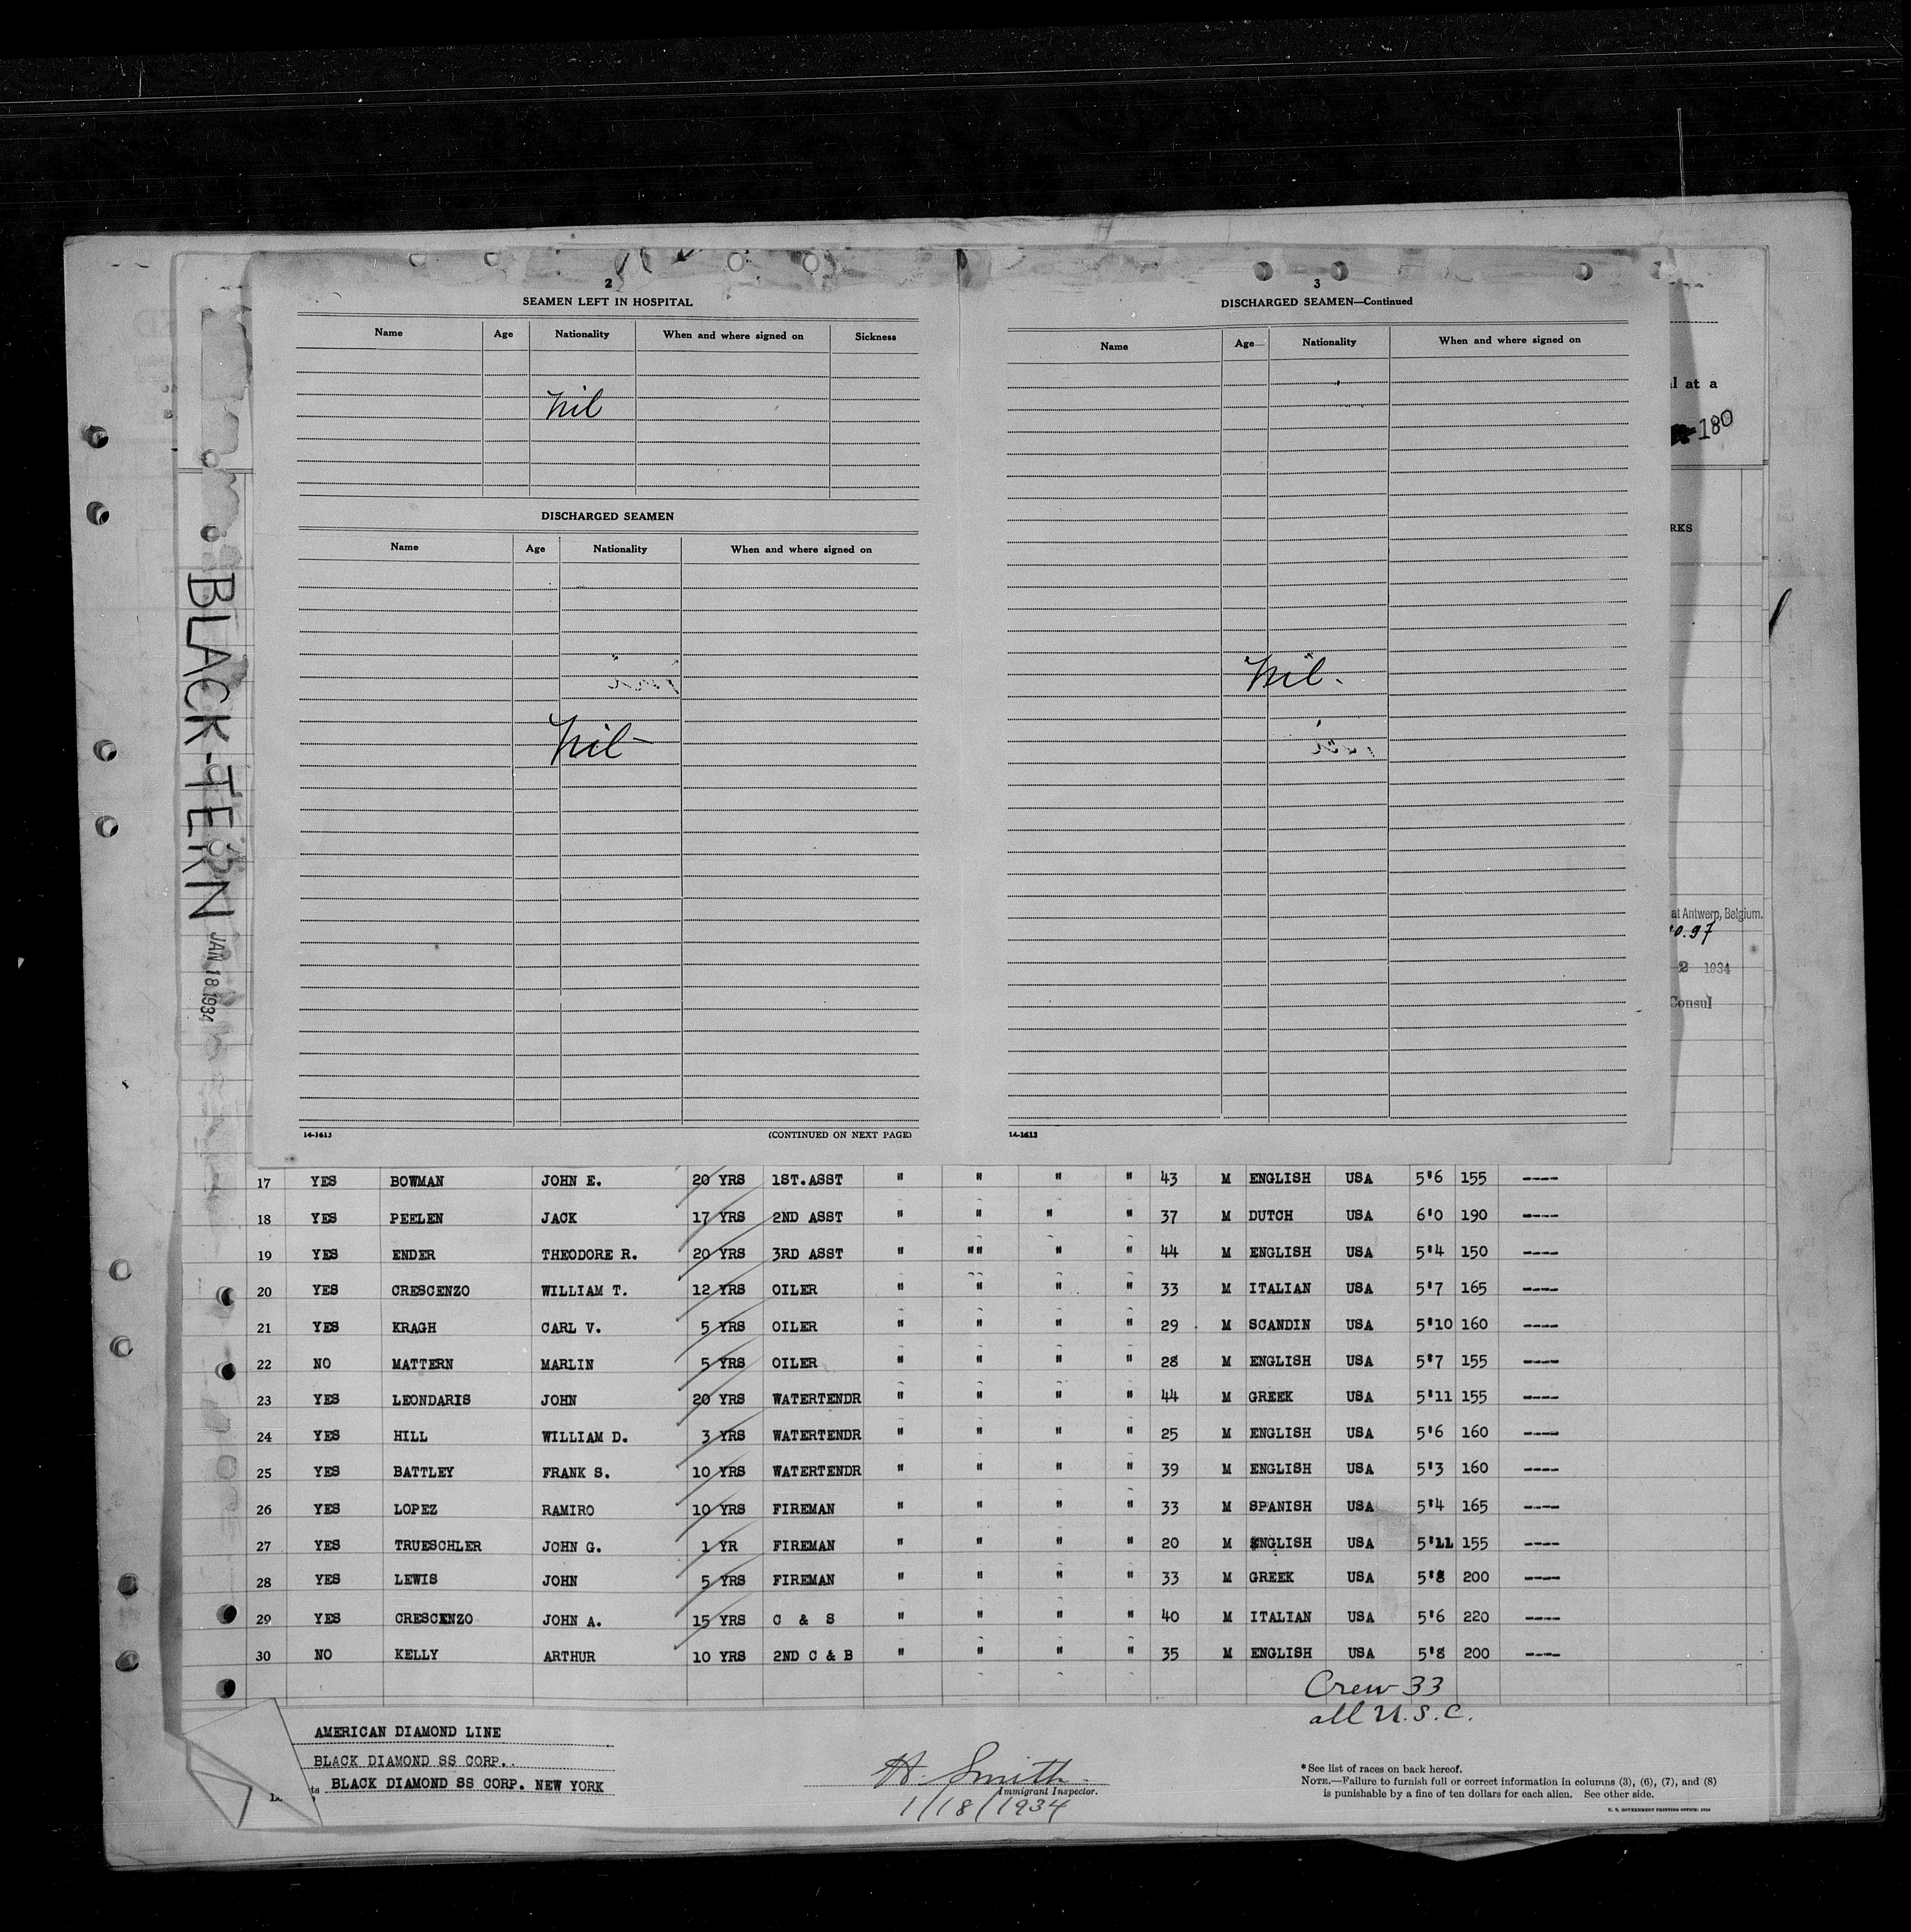 2
SEAMEN LEFT IN HOSPITAL
Name Age Nationality When and where signed on Sickness
Nil
DISCHARGED SEAMEN
Name Age Nationality When and where signed on
Nil
14-1613 (CONTINUED ON NEXT PAGE)
3
DISCHARGED SEAMEN—Continued
Name Age Nationality When and where signed on
Nil.
14-1613
at a
180
RKS
at Antwerp, Belgium.
97
2 1934
Consul
BLACK-TERN JAN 18 1934
17 YES BOWMAN JOHN E. 20 YRS 1ST.ASST " " " " 43 M ENGLISH USA 5'6 155 ----
18 YES PEELEN JACK 17 YRS 2ND ASST " " " " 37 M DUTCH USA 6'0 190 ----
19 YES ENDER THEODORE R. 20 YRS 3RD ASST " "" " " 44 M ENGLISH USA 5'4 150 ----
20 YES CRESCENZO WILLIAM T. 12 YRS OILER " " " " 33 M ITALIAN USA 5'7 165 ----
21 YES KRAGH CARL V. 5 YRS OILER " " " " 29 M SCANDIN USA 5'10 160 ----
22 NO MATTERN MARLIN 5 YRS OILER " " " " 28 M ENGLISH USA 5'7 155 ----
23 YES LEONDARIS JOHN 20 YRS WATERTENDR " " " " 44 M GREEK USA 5'11 155 ----
24 YES HILL WILLIAM D. 3 YRS WATERTENDR " " " " 25 M ENGLISH USA 5'6 160 ----
25 YES BATTLEY FRANK S. 10 YRS WATERTENDR " " " " 39 M ENGLISH USA 5'3 160 ----
26 YES LOPEZ RAMIRO 10 YRS FIREMAN " " " " 33 M SPANISH USA 5'4 165 ----
27 YES TRUESCHLER JOHN G. 1 YR FIREMAN " " " " 20 M ENGLISH USA 5'11 155 ----
28 YES LEWIS JOHN 5 YRS FIREMAN " " " " 33 M GREEK USA 5'8 200 ----
29 YES CRESCENZO JOHN A. 15 YRS C & S " " " " 40 M ITALIAN USA 5'6 220 ----
30 NO KELLY ARTHUR 10 YRS 2ND C & B " " " " 35 M ENGLISH USA 5'8 200 ----
Crew 33
all U.S.C.
AMERICAN DIAMOND LINE
BLACK DIAMOND SS CORP.
BLACK DIAMOND SS CORP. NEW YORK
H. Smith
Immigrant Inspector.
1/18/1934
*See list of races on back hereof.
NOTE.—Failure to furnish full or correct information in columns (3), (6), (7), and (8)
is punishable by a fine of ten dollars for each alien. See other side.
U. S. GOVERNMENT PRINTING OFFICE: